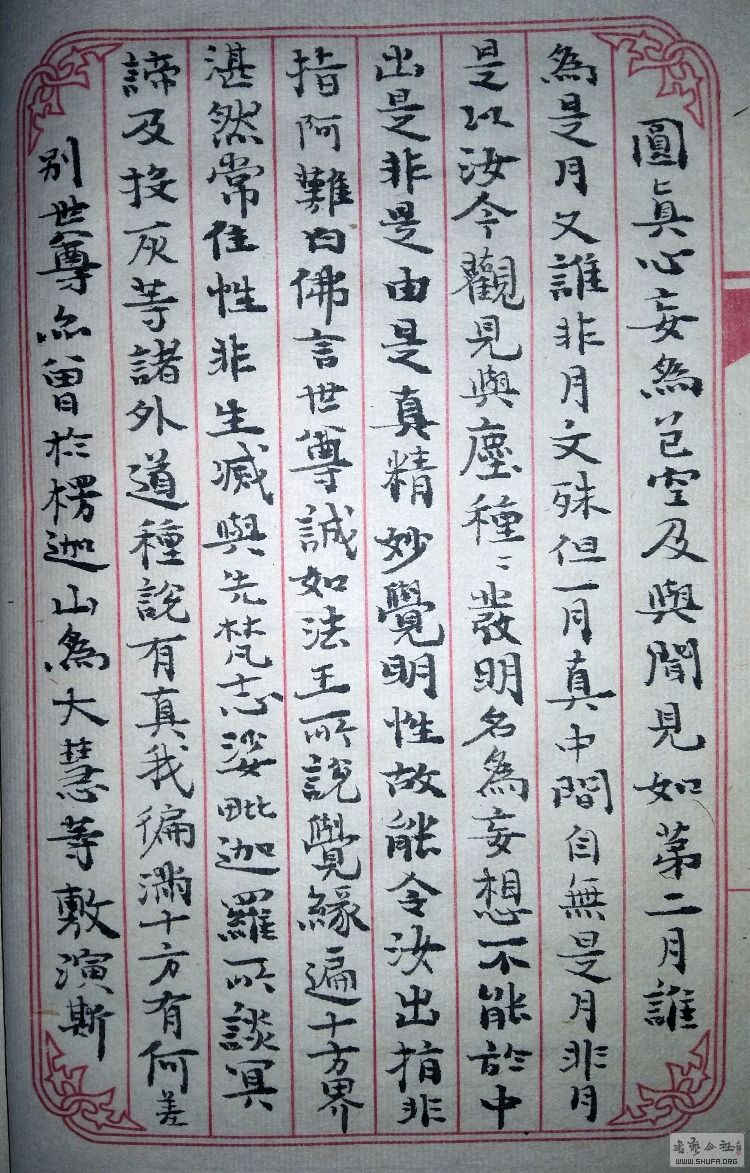 圓真心妄為色空及與聞見如第二月誰
為是月又誰非月文殊但一月真中間自無是月非月
是以汝今觀見與塵種〻發明名為妄想不能於中
出是非是由是真精妙覺明性故能令汝出指非
指阿難白佛言世尊誠如法王所說覺緣遍十方界
湛然常住性非生滅與先梵志娑毗迦羅所談冥
諦及投灰等諸外道種說有真我徧滿十方有何差
別世尊亦曾於楞迦山為大慧等敷演斯
WWW.SHUFA.ORG